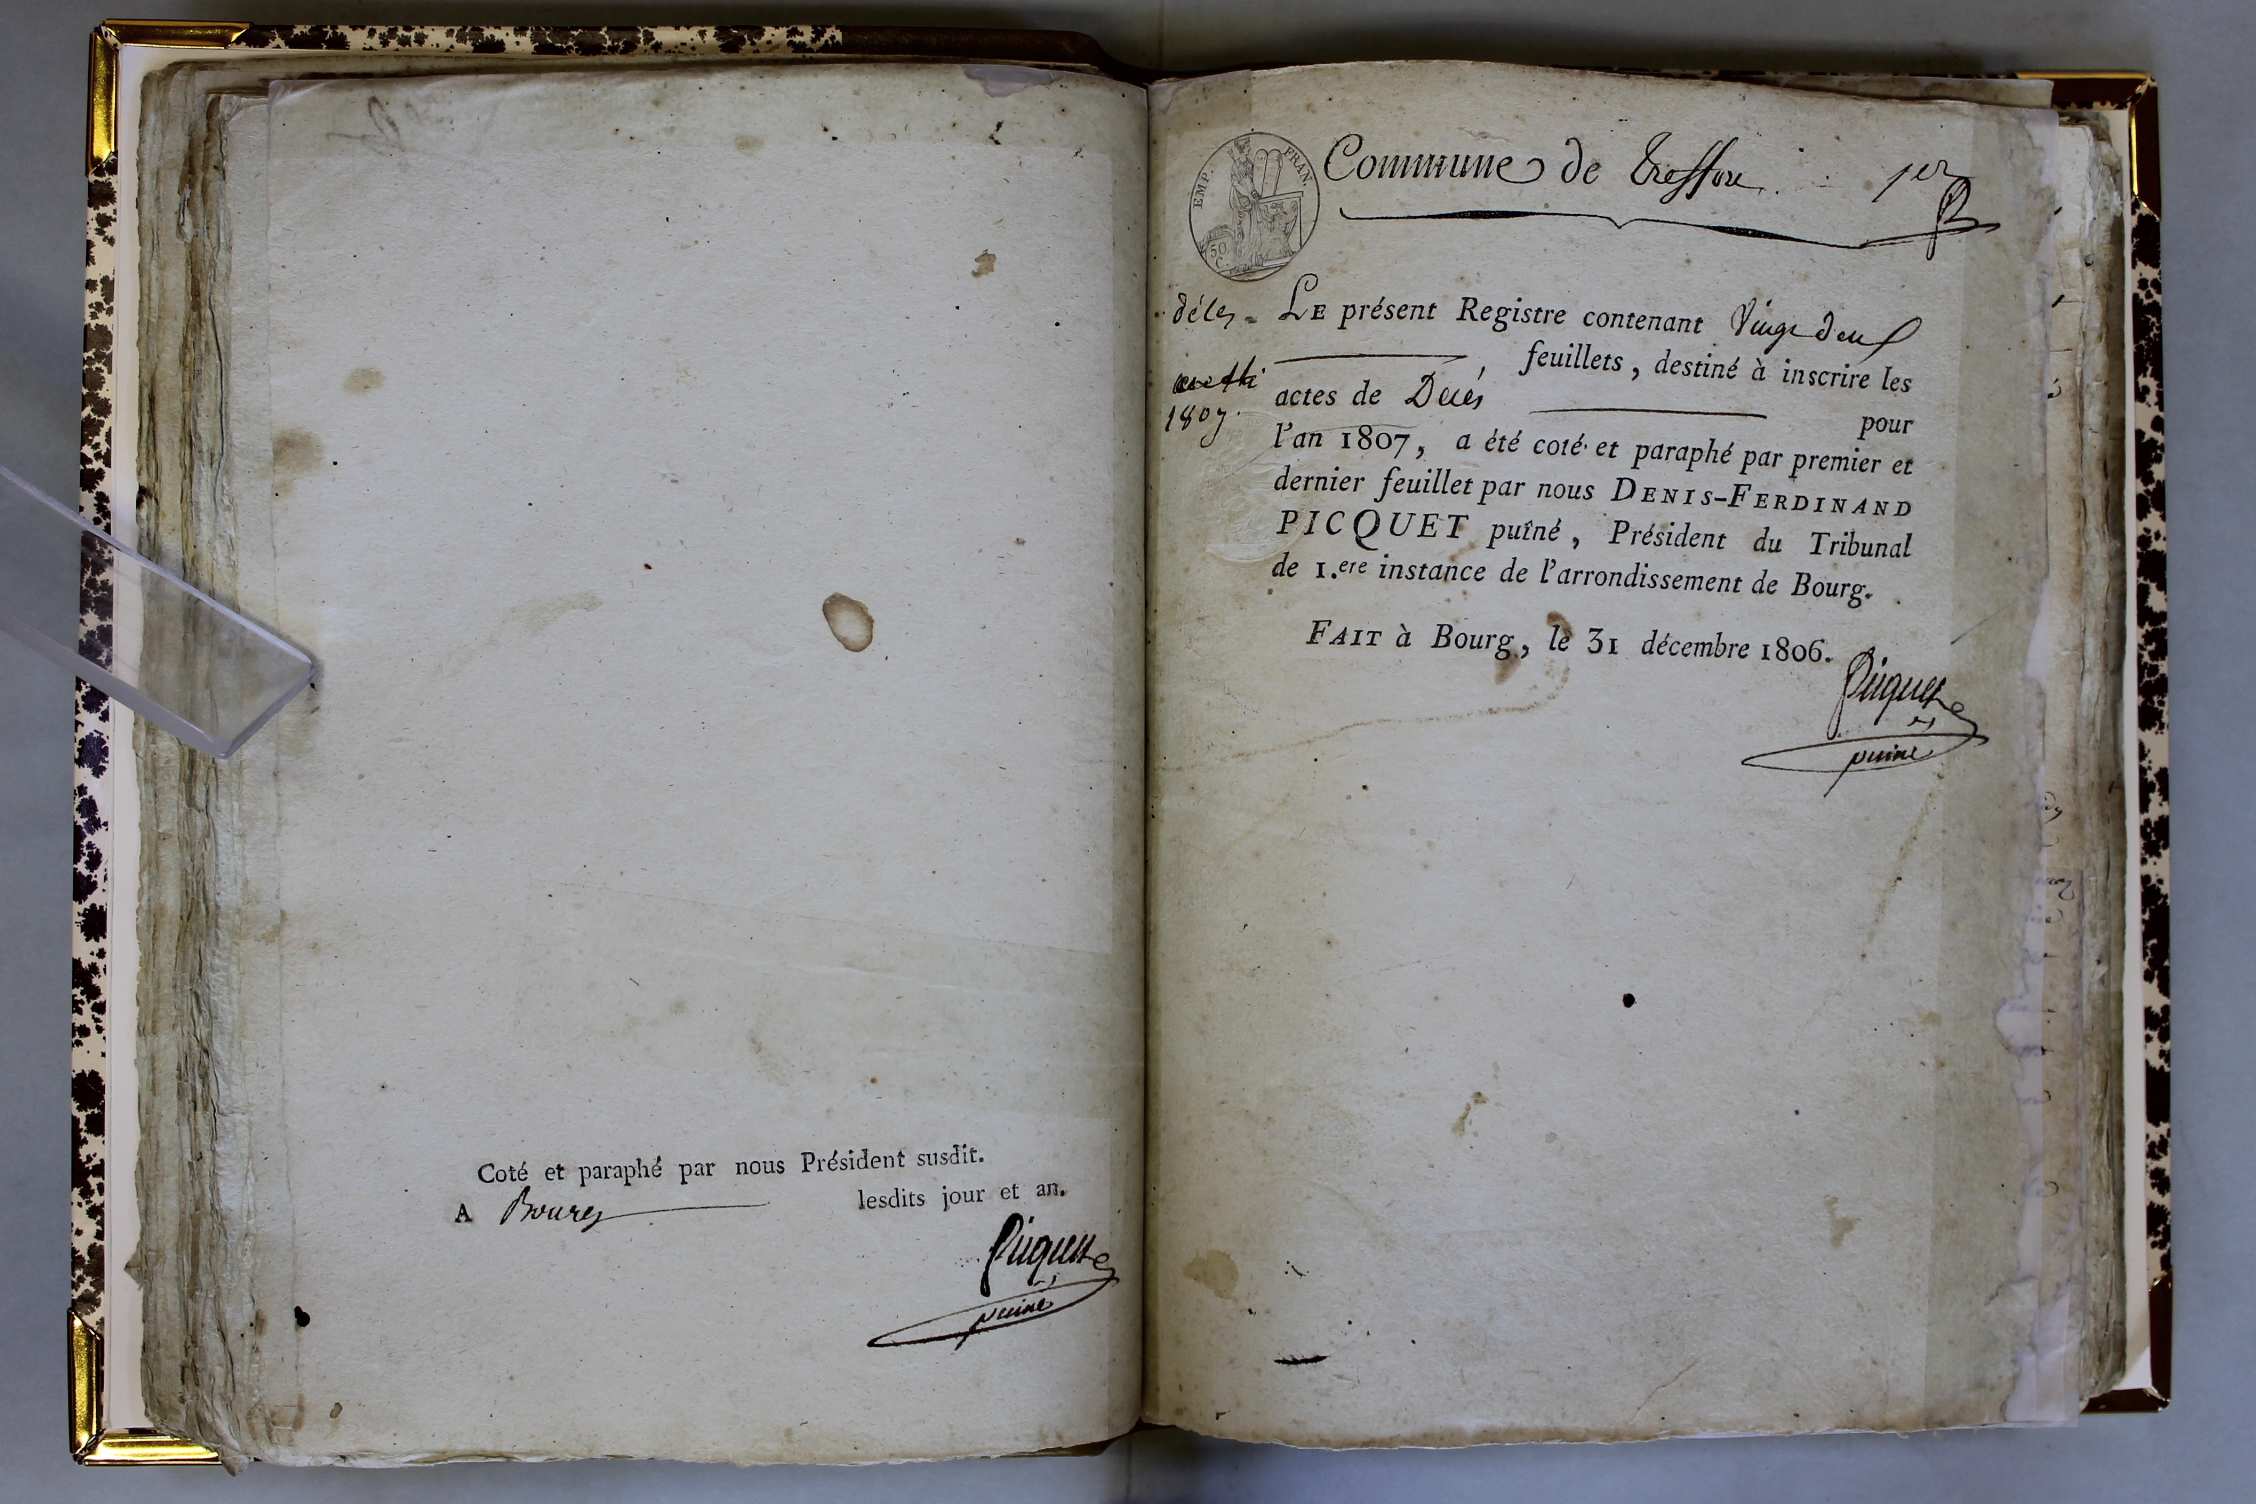 Coté et paraphé par nous Président susdit.
A Bourg lesdits jour et an.
Picquet
puiné
EMP. FRAN.
50
C.
Commune de Treffort 1er
décès LE présent Registre contenant Vingt deux
, feuillets, destiné à inscrire les
actes de Décès pour
1807. l'an 1807, a été coté et paraphé par premier et
dernier feuillet par nous DENIS-FERDINAND
PICQUET puîné, Président du Tribunal
de 1.ere instance de l'arrondissement de Bourg.
FAIT à Bourg, le 31 décembre 1806.
Picquet
puiné